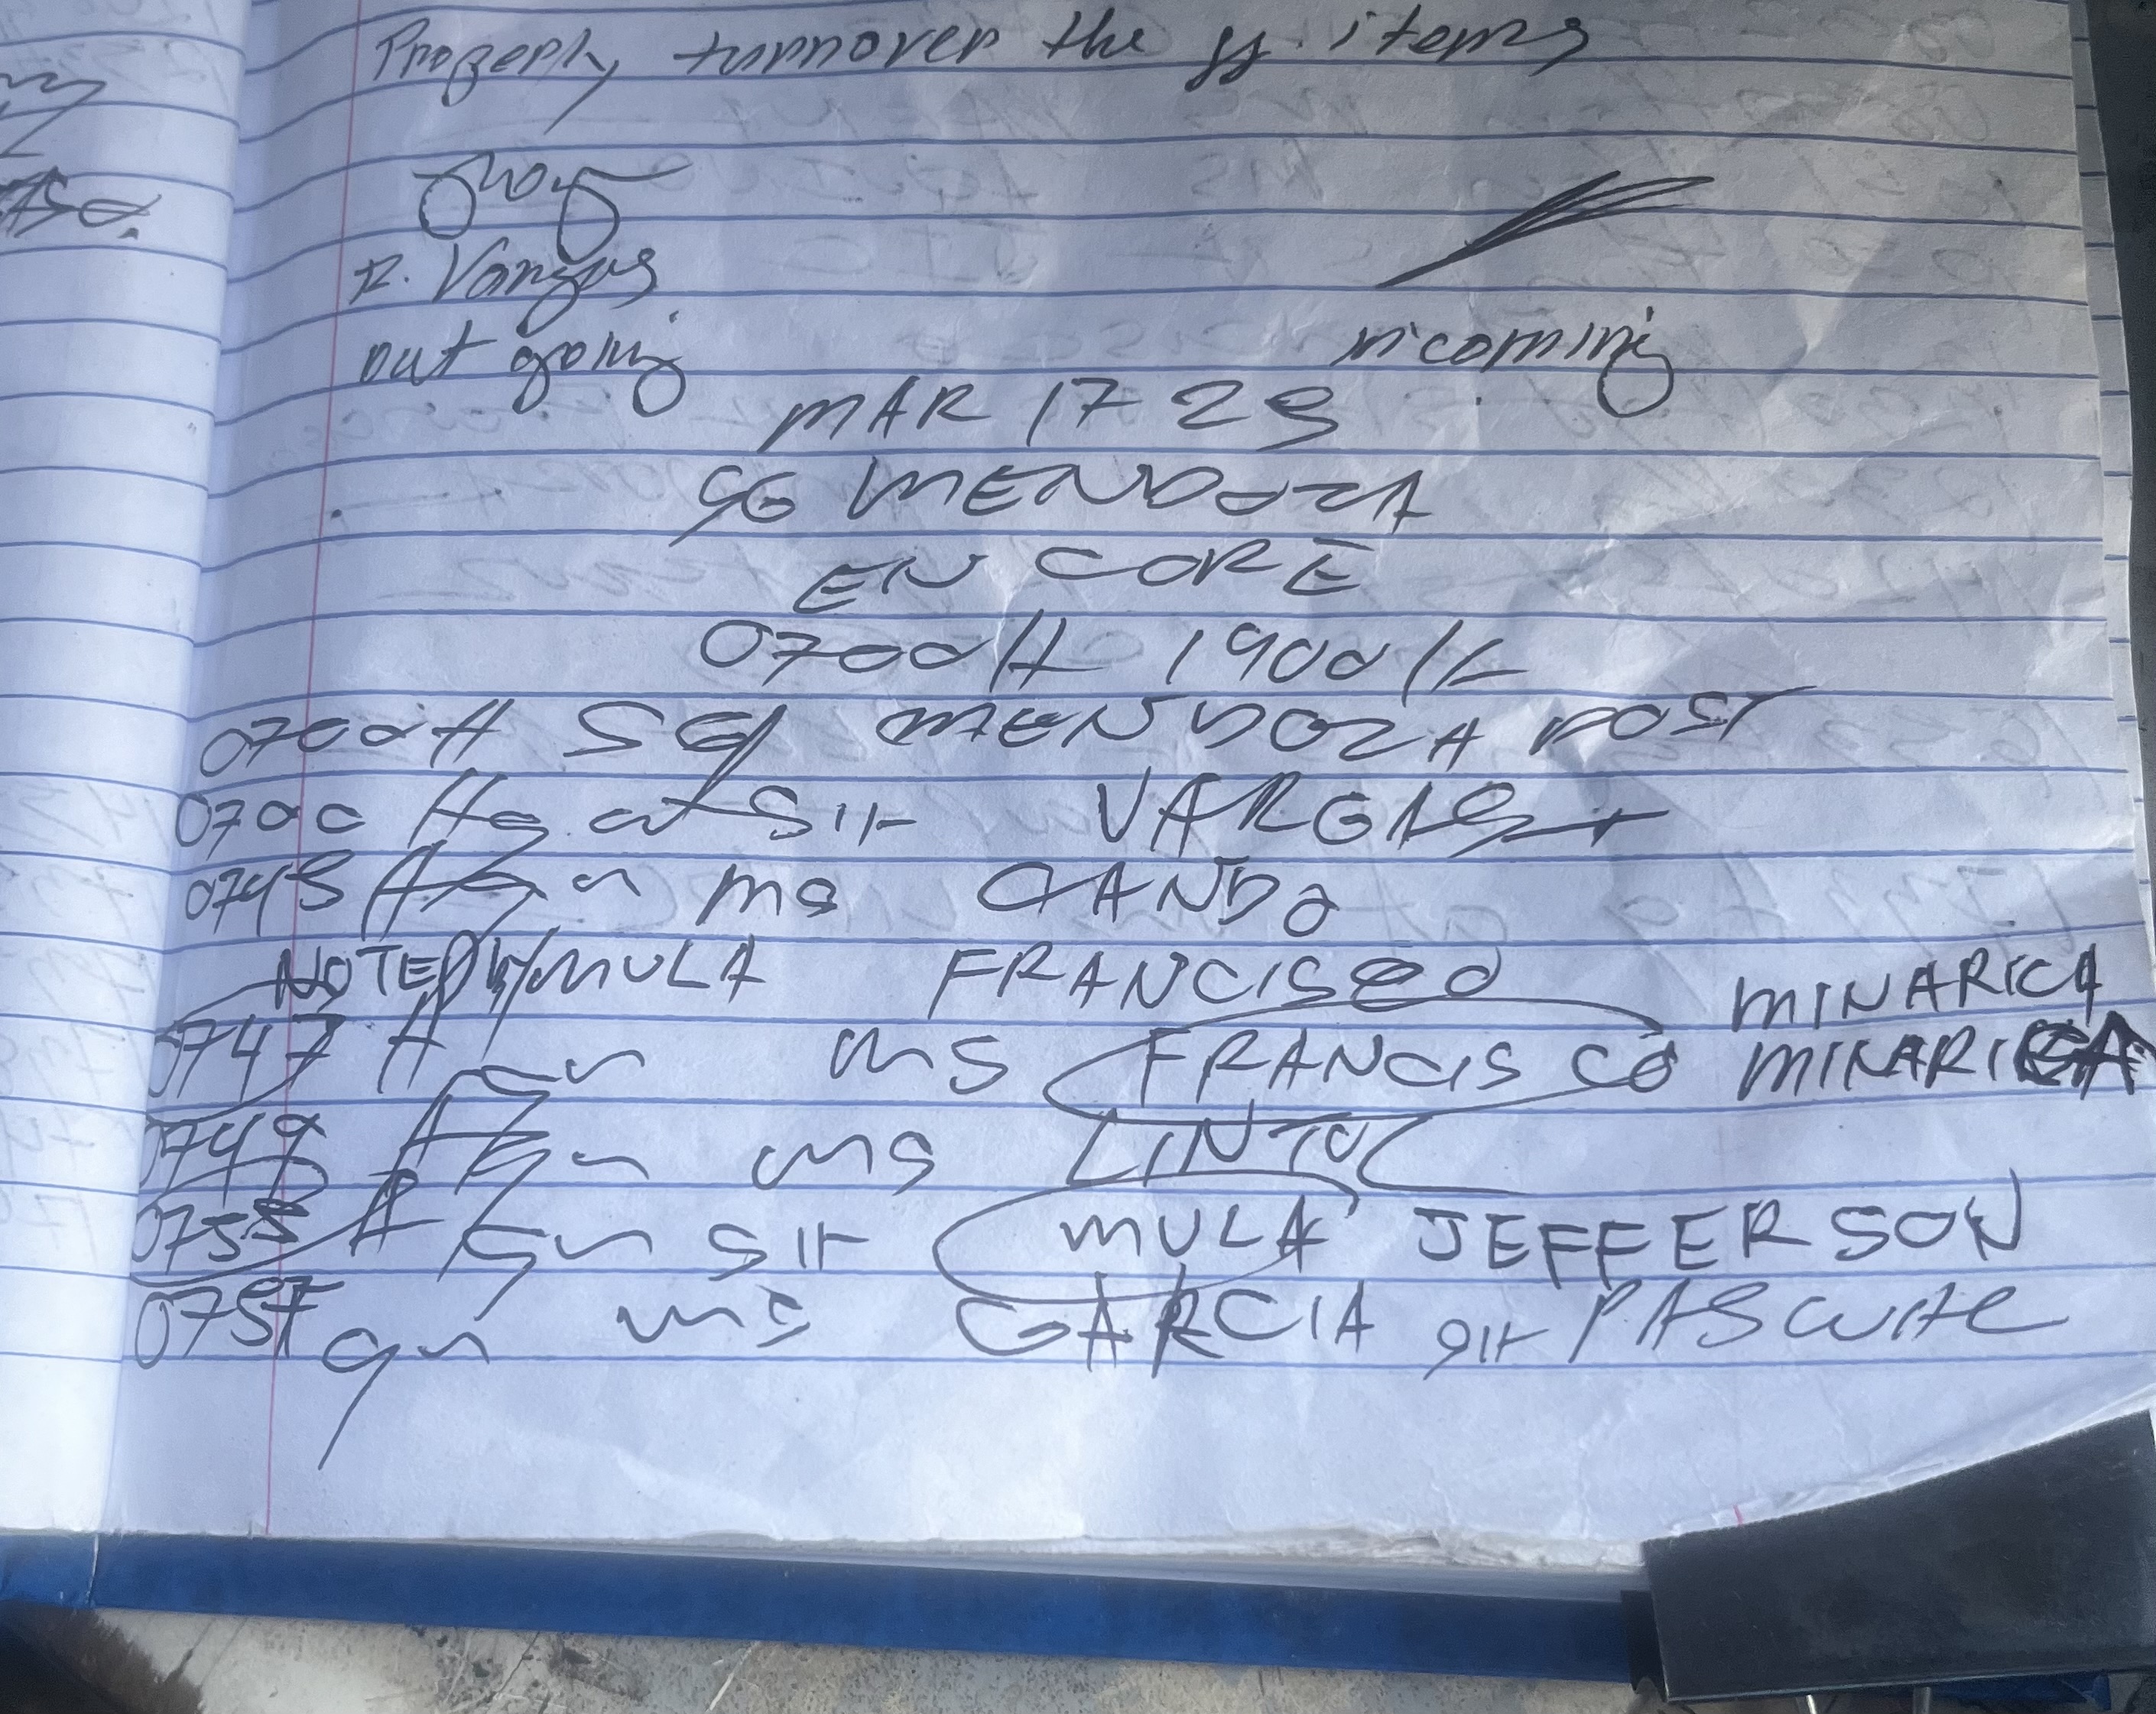 Properly turnover the ff. items
R. Vargas
out going
incoming
MAR 17 25
SG MENDOZA
EN CORE
0700H 1900H
0700H SG MENDOZA POST
0700 H out sir VARGAS
0745 H in ms CANDO
NOTED MULA FRANCISCO MINARICA
0747 H in ms FRANCISCO MINARICA
0749 H in ms LINTOC
0755 H in sir MULA JEFFERSON
0757 in ms GARCIA sir PASCUAL